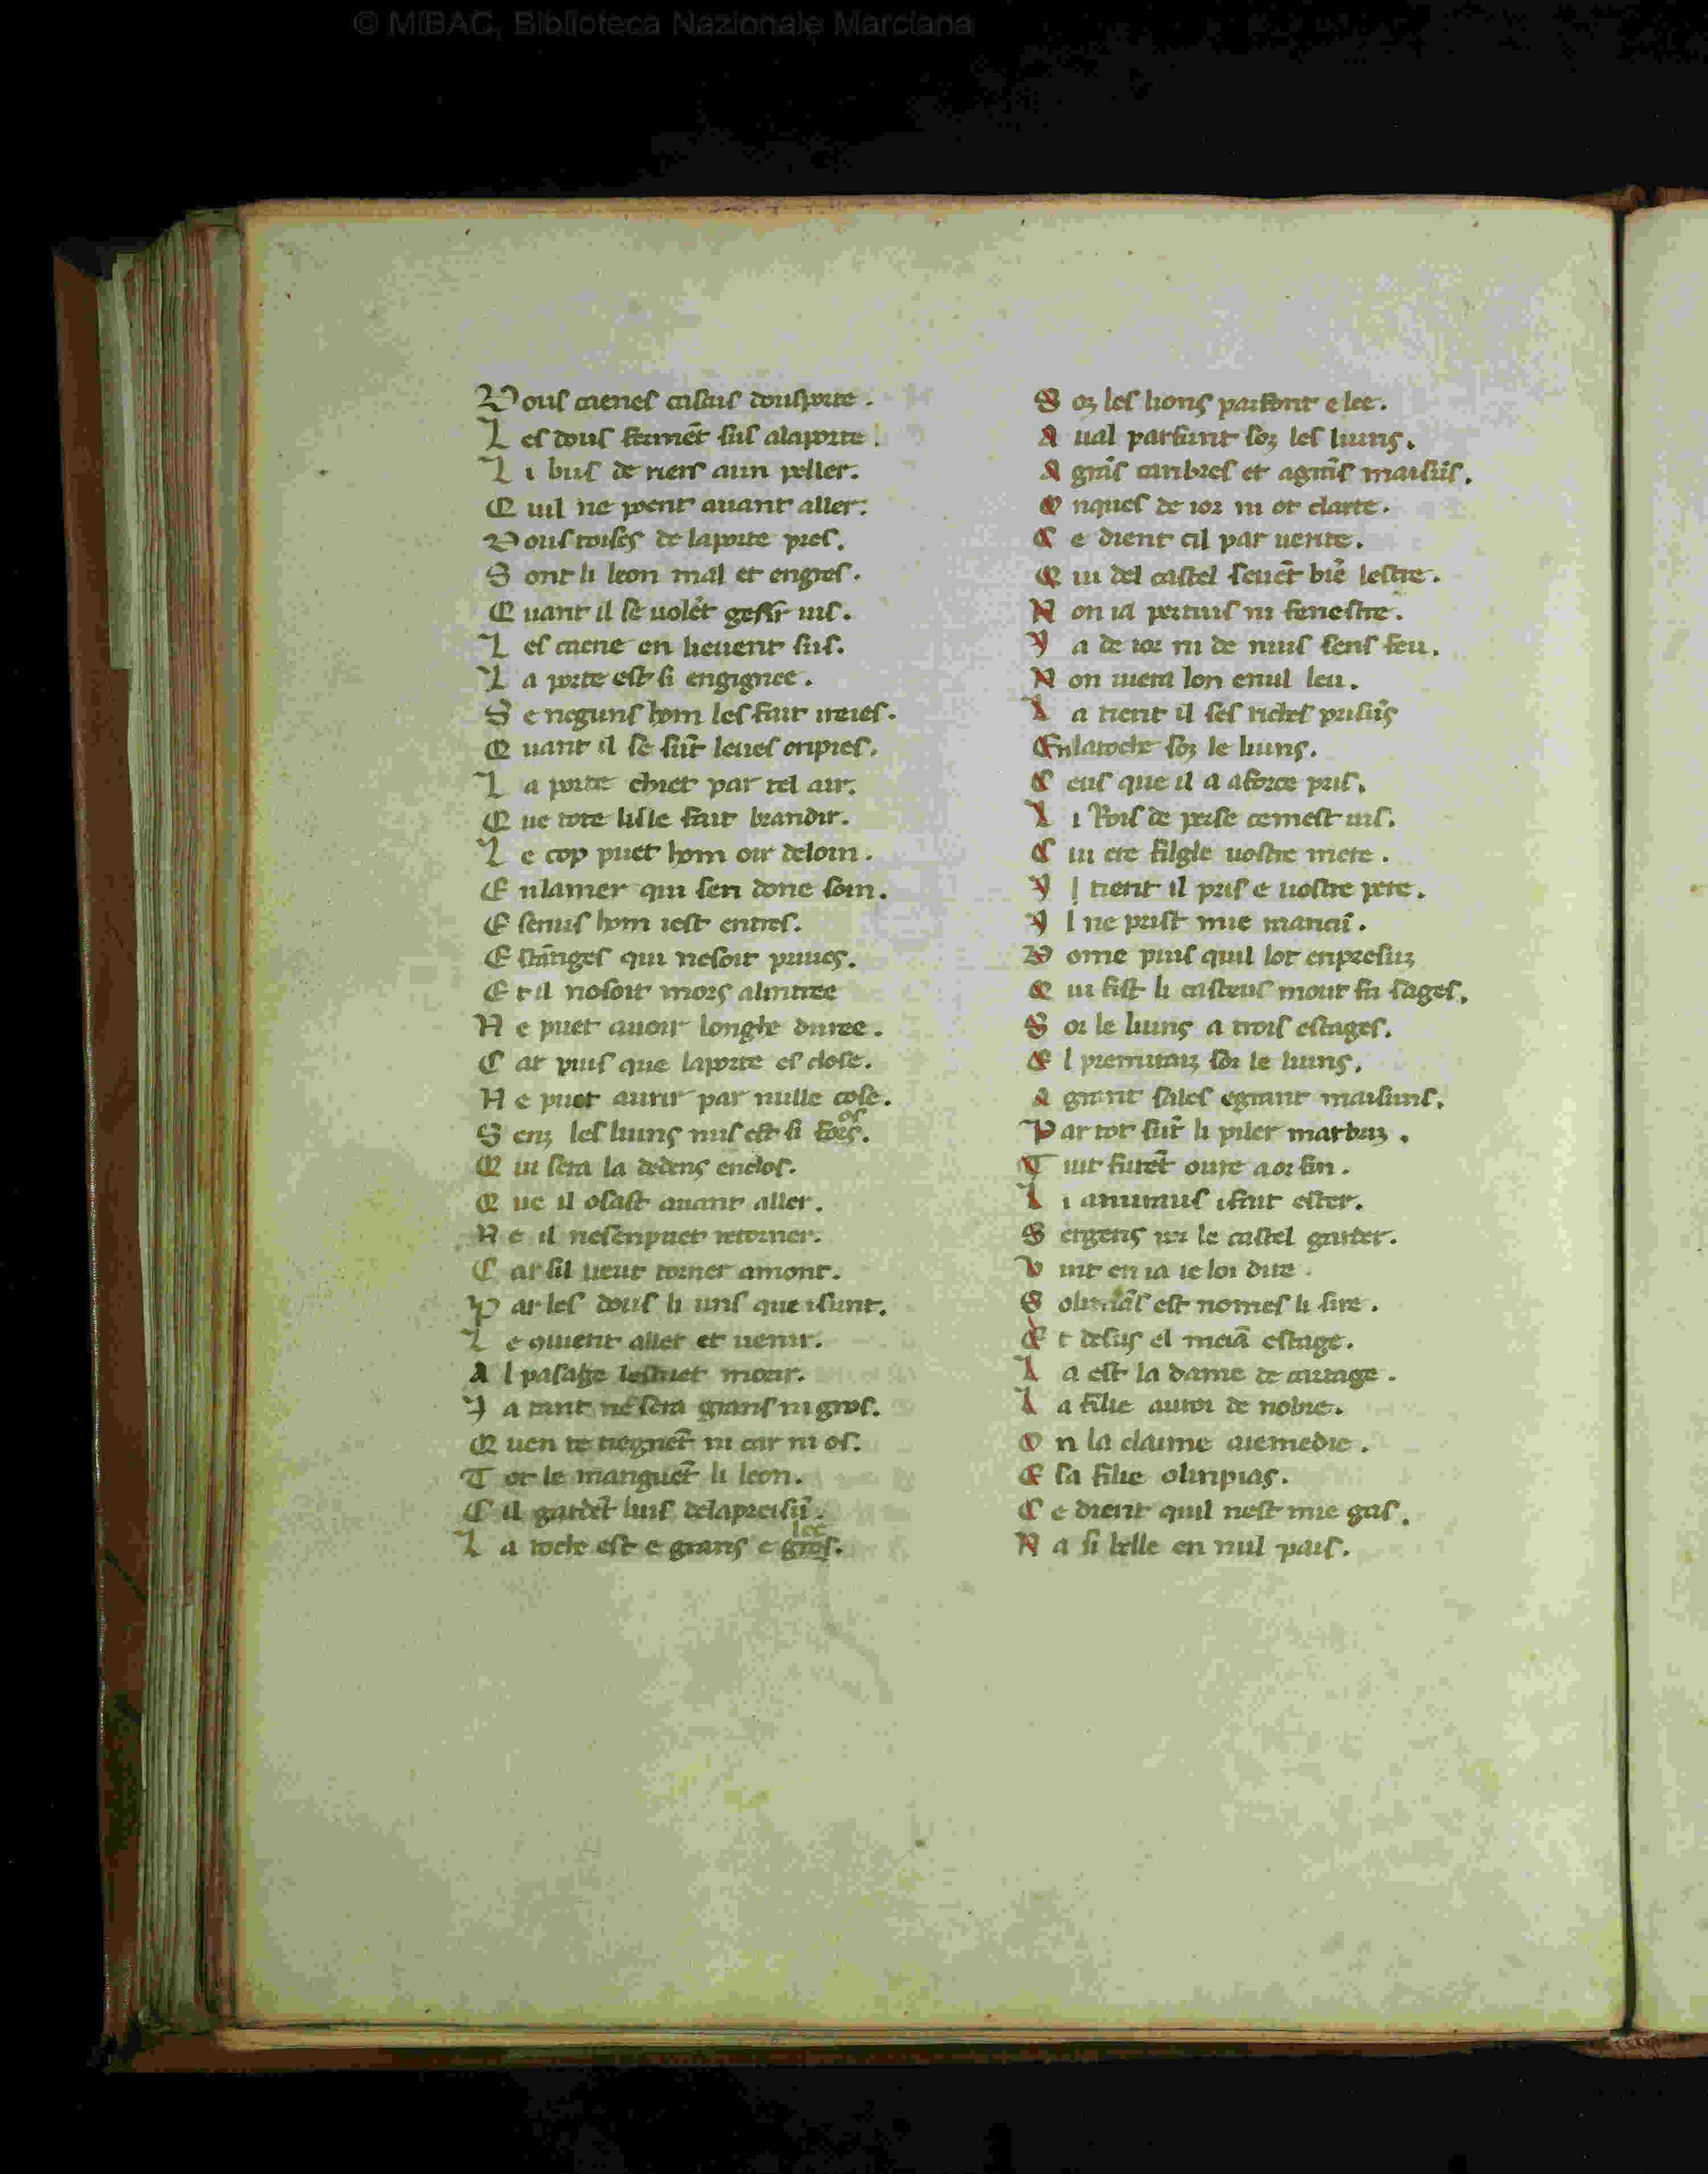 © MiBAC, Biblioteca Nazionale Marciana
D ous caenes casais dousporte.
L es dous fermēt sus alaporte.
L i bus de riers aun peller.
Q uil ne poent auant aller.
D ous toises de laporte pres.
S ont li leon mal et engres.
Q uant il se uolēt gesir ius.
L es caene en lieuent sus.
L a porte est si engignee.
S e neguns hom les fait ireies.
Q uant il se sūt leues enpies.
L a porte chiet par tel air.
Q ue tote lisle fait brandir.
L e cop puet hom oir deloin.
E nlamer qui sen done soin.
E senus hom iest entres.
E strāges qui nesoit priueç.
E t il nosoit morç alintree
N e puet auoir longhe duree.
C ar puis que laporte es close.
N e puet aurir par nulle cose.
S enz les liuns nus est si fors. os
Q ui sera la dedenç enclos.
Q ue il osast auant aller.
N e il nesenpuet retorner.
C ar sil ueut torner amont.
P ar les dous li uns que isunt.
L e quient aller et uenir.
A l pasaghe lestuet morir.
Y a tant ne sera grans ni gros.
Q uen te tiegnēt ni car ni os.
T ot le manguēt li leon.
C il gardēt luis delapreisū.
L a roche est e granç e gros. lee
S oz les lionç parfont e lee.
A ual parfunt soz les liunç.
A grās canbres et agrās maisūs.
O nques de ior ni ot clarte.
C e dient cil par uerite.
Q ui del castel seuēt biē lestre.
N on ia pertuis ni fenestre.
Y a de ior ni de nuis sens feu.
N on uiera lon enul leu.
L a tient il ses riches prisūs
Enlaroche soz le liunç.
C eus que il a aforce pris.
L i Rois de perse cemest uis.
C ui ere filgle uostre mere.
Y l tient il pris e uostre pere.
Y l ne prist mie manciī.
D ome puis quil lot enpresuz
Q ui fist li casteus mout fu sages.
S or le liunç a trois estages.
E l premeranz sor le liunç.
A grant sales egrant maisuns.
P ar tot sūt li piler marbrz.
T uit furēt oure a or fin.
L i amiraus i fait ester.
S ergenç por le castel garder.
V int en ia ie loi dire.
S olimās est nomes li sire.
E t desuç el meiā estage.
L a est la dame de cartage.
L a filie autor de nobie.
O n la claime aiemedie.
E sa filie olinpiaç.
C e dient quil nest mie gas.
N a si belle en nul pais.